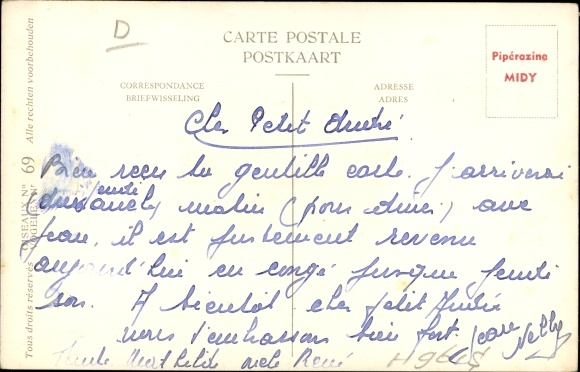 D
CARTE POSTALE
POSTKAART
Pipérazine
MIDY
CORRESPONDANCE
BRIEFWISSELING
ADRESSE
ADRES
Tous droits réservés
Alle rechten voorbehouden
OISEAUX Nº 69
VOGELEN Nr
Cher Petit André
Bien reçu ta gentille carte. J'arriverai
jeudi
matin (pour dîner) avec
Jean, il est justement revenu
aujourd'hui en congé jusque jeudi
soir. A bientôt cher petit André
nous t'embrassons bien fort. Jean Nelly
Tante Mathilde oncle René